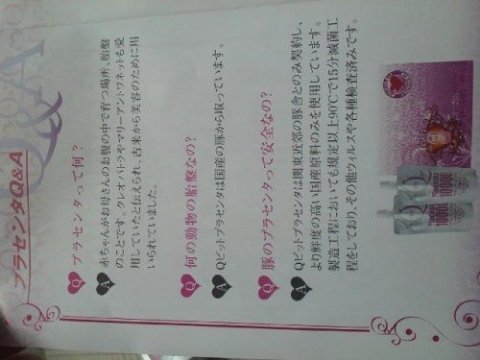 プラセンタQ&A
Q プラセンタって何？
A 赤ちゃんがお母さんのお腹の中で育つ場所、胎盤
のことです。クレオパトラやマリーアントワネットも愛
用していたと伝えられ、古来から美容のために用
いられていました。
Q 何の動物の胎盤なの？
A Qピットプラセンタは国産の豚から取っています。
Q 豚のプラセンタって安全なの？
A Qピットプラセンタは関東近郊の豚舎とのみ契約し、
より鮮度の高い国産原料のみを使用しています。
製造工程においても規定以上90℃で15分滅菌工
程をしており、その他ウィルスや各種検査済みです。
10000
10000